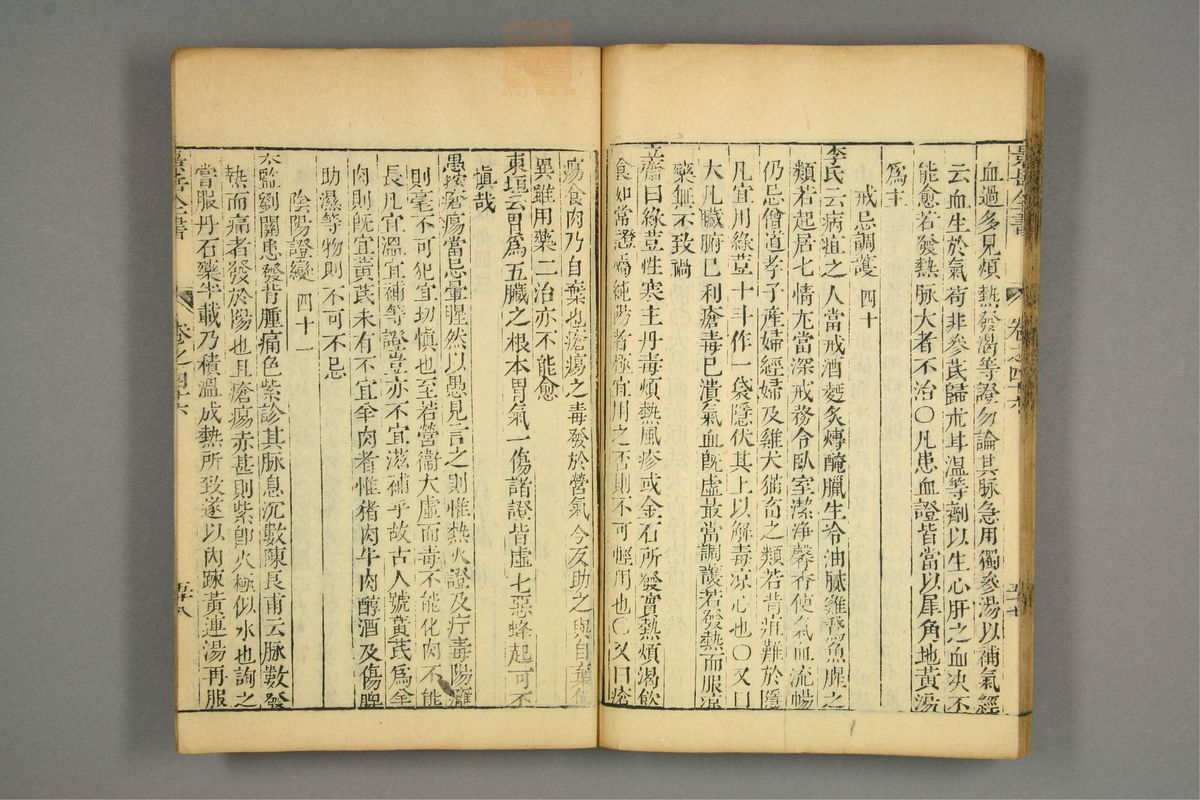 景岳全書 卷之四十六 五十七
血過多見煩熱發渴等證勿論其脉急用獨參湯以補氣經
云血生於氣苟非參芪歸朮甘溫等劑以生心肝之血决不
能愈若發熱脉大者不治〇凡患血證皆當以犀角地黃湯
爲主
戒忌調護 四十
李氏云病疽之人當戒酒麪炙煿醃臘生冷油膩雞鵞魚腥之
類若起居七情尤當深戒務令臥室潔淨馨香使氣血流暢
仍忌僧道孝子產婦經婦及雞犬猫畜之類若背疽難於隱
凡宜用綠荳十斗作一袋隱伏其上以解毒凉心也〇又曰
大凡臟腑已利瘡毒已潰氣血旣虛最當調護若發熱而服凉
藥無不致禍
立齋曰綠荳性寒主丹毒煩熱風疹或金石所發實熱煩渴飲
食如常證 純陽者極宜用之否則不可輕用也〇又曰瘡
瘍食肉乃自棄也瘡瘍之毒發於營氣今反助之與自棄何
異雖用藥二治亦不能愈
東垣云胃爲五臟之根本胃氣一傷諸證皆虛七惡蜂起可不
愼哉
愚按瘡瘍當忌暈腥然以愚見言之則惟熱火證及疔毒陽癰
則毫不可犯宜切愼也至若營衞大虛而毒不能化肉不能
長凡宜溫宜補等證豈亦不宜滋補乎故古人號黃芪爲羊
肉則旣宜黃芪未有不宜羊肉者惟猪肉牛肉醇酒及傷脾
助濕等物則不可不忌
陰陽證變 四十一
太監劉關患發背腫痛色紫診其脉息沉數陳良甫云脉數發
熱而痛者發於陽也且瘡瘍赤甚則紫卽火極似水也詢之
嘗服丹石藥半載乃積溫成熱所致遂以內踈黃連湯再服
景岳全書 卷之四十六 五十八